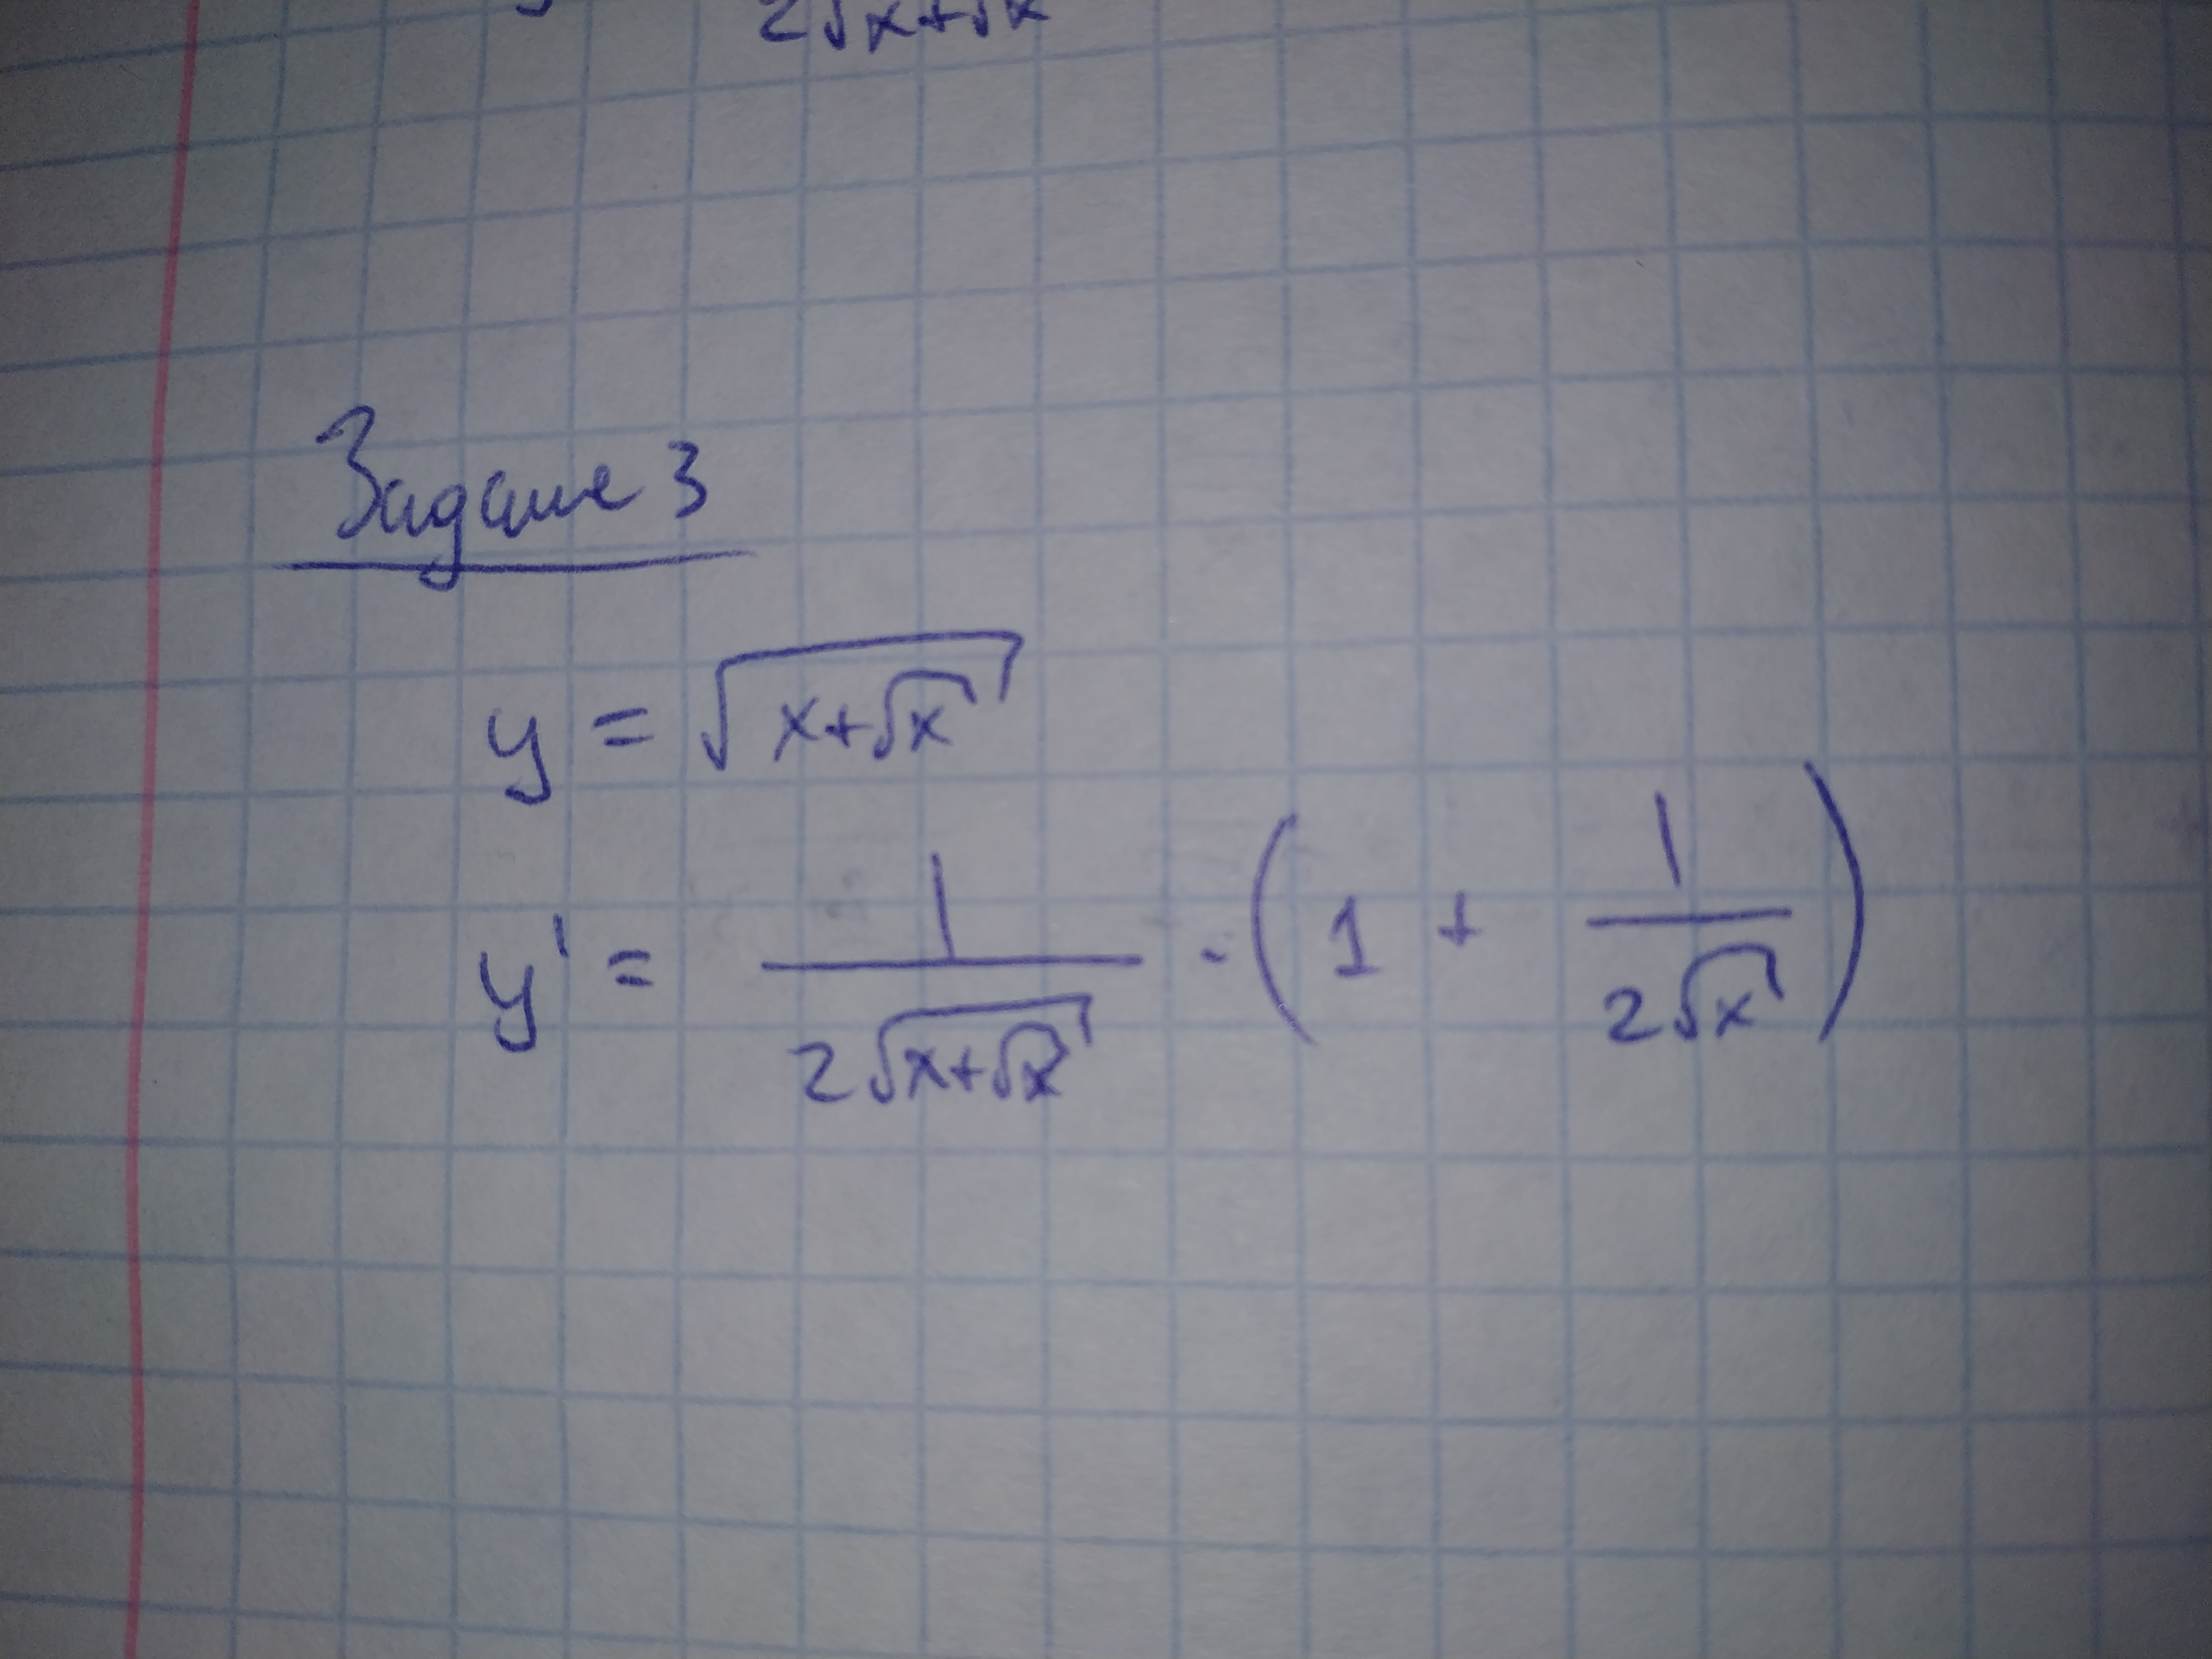 2√x+√x
Задание 3
y = √(x+√x)
y' = 1/(2√(x+√x)) · (1 + 1/(2√x))